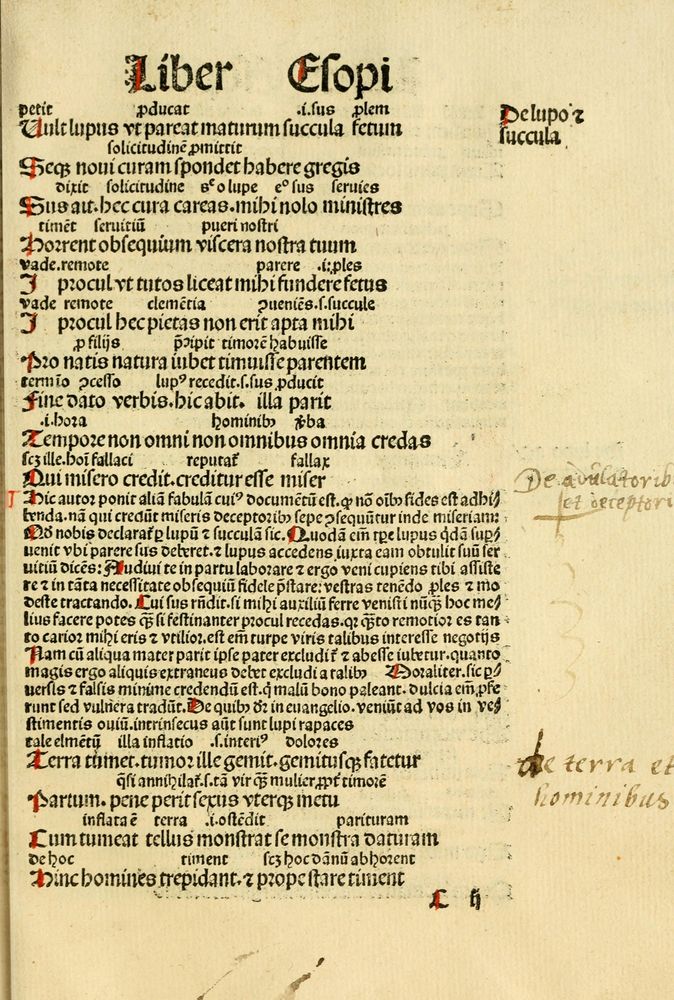 Liber Esopi
petit ꝓducat .i.sus ꝓlem
Uult lupus vt pareat maturum succula fetum
De lupo ⁊
succula
solicitudinē ꝓmittit
Seqꝫ noui curam spondet habere gregis
dixit solicitudine lupe sus
Sus ait. hec cura careas. mihi nolo ministres
timēt seruitiū pueri nostri
Horrent obsequium viscera nostra tuum
vade.remote parere .i.ꝓles
I procul vt tutos liceat mihi fundere fetus
vade remote clemētia ꝯueniēs.s.succule
I procul hec pietas non erit apta mihi
ꝓ filijs p̄cipit timorē habuisse
Pro natis natura iubet timuisse parentem
termīo ꝯcesso lupꝰ recedit.s.sus ꝓducit
Fine dato verbis. hic abit. illa parit
.i.hora hominibꝰ v̄ba
Tempore non omni non omnibus omnia credas
scꝫ ille.hoī fallaci reputat̄ fallax
Qui misero credit. creditur esse miser
Hic autor ponit aliā fabulā cuiꝰ documētū est. ꝙ nō oībꝰ fides est adhi
benda. nā qui credūt miseris deceptoribꝰ sepe ꝯsequūtur inde miseriam:
De auulatoribus
et deceptori
Qd̄ nobis declarat̄ ꝑ lupū ⁊ succulā sic. Quodā em̄ tꝑe lupus q̄dā suꝑ
uenit vbi parere sus deberet. ⁊ lupus accedens iuxta eam obtulit suū ser
uitiū dicēs: Audiui te in partu laborare ⁊ ergo veni cupiens tibi assiste
re ⁊ in tāta necessitate obsequiū fidele p̄stare: vestras tenēdo ꝓles ⁊ mo
deste tractando. Cui sus rn̄dit. si mihi auxiliū ferre venisti nūꝙ̄ hoc me/
lius facere potes ꝙ̄ si festinanter procul recedas. qr ꝙ̄to remotior es tan
to carior mihi eris ⁊ vtilior. est em̄ turpe viris talibus interesse negotijs
Nam cū aliqua mater parit ipse pater excludit̄ ⁊ abesse iubetur. quanto
magis ergo aliquis extraneus debet excludi a talibꝰ Moraliter. sic ꝑ
uersis ⁊ falsis minime credendū est. q̄ malū bono paleant. dulcia em̄ ꝓfe
runt sed vulnera tradūt. De quibꝰ dr̄ in euangelio. veniūt ad vos in ve/
stimentis ouiū. intrinsecus aūt sunt lupi rapaces
tale elmētū illa inflatio .s.interiꝰ dolores
Terra tumet. tumor ille gemit. gemitusqꝫ fatetur
De terra et
hominibus
q̄si annihilat̄.s.tā vir qꝫ mulier.ꝓpt̄ timorē
Partum. pene perit sexus vterqꝫ metu
inflata ē terra .i.ostēdit parituram
Cum tumeat tellus monstrat se monstra daturam
de hoc timent scꝫ hoc dānū abhorent
Hinc homines trepidant. ⁊ prope stare timent
C ij